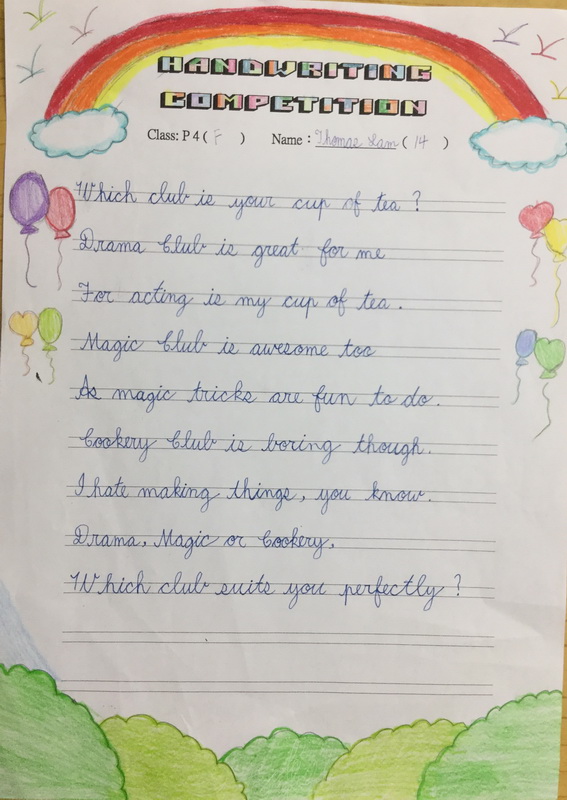 HANDWRITING
COMPETITION
Class: P 4 ( F ) Name : Thomas Lam ( 14 )
Which club is your cup of tea ?
Drama Club is great for me
For acting is my cup of tea .
Magic Club is awesome too
As magic tricks are fun to do .
Cookery Club is boring though .
I hate making things, you know.
Drama, Magic or Cookery,
Which club suits you perfectly ?